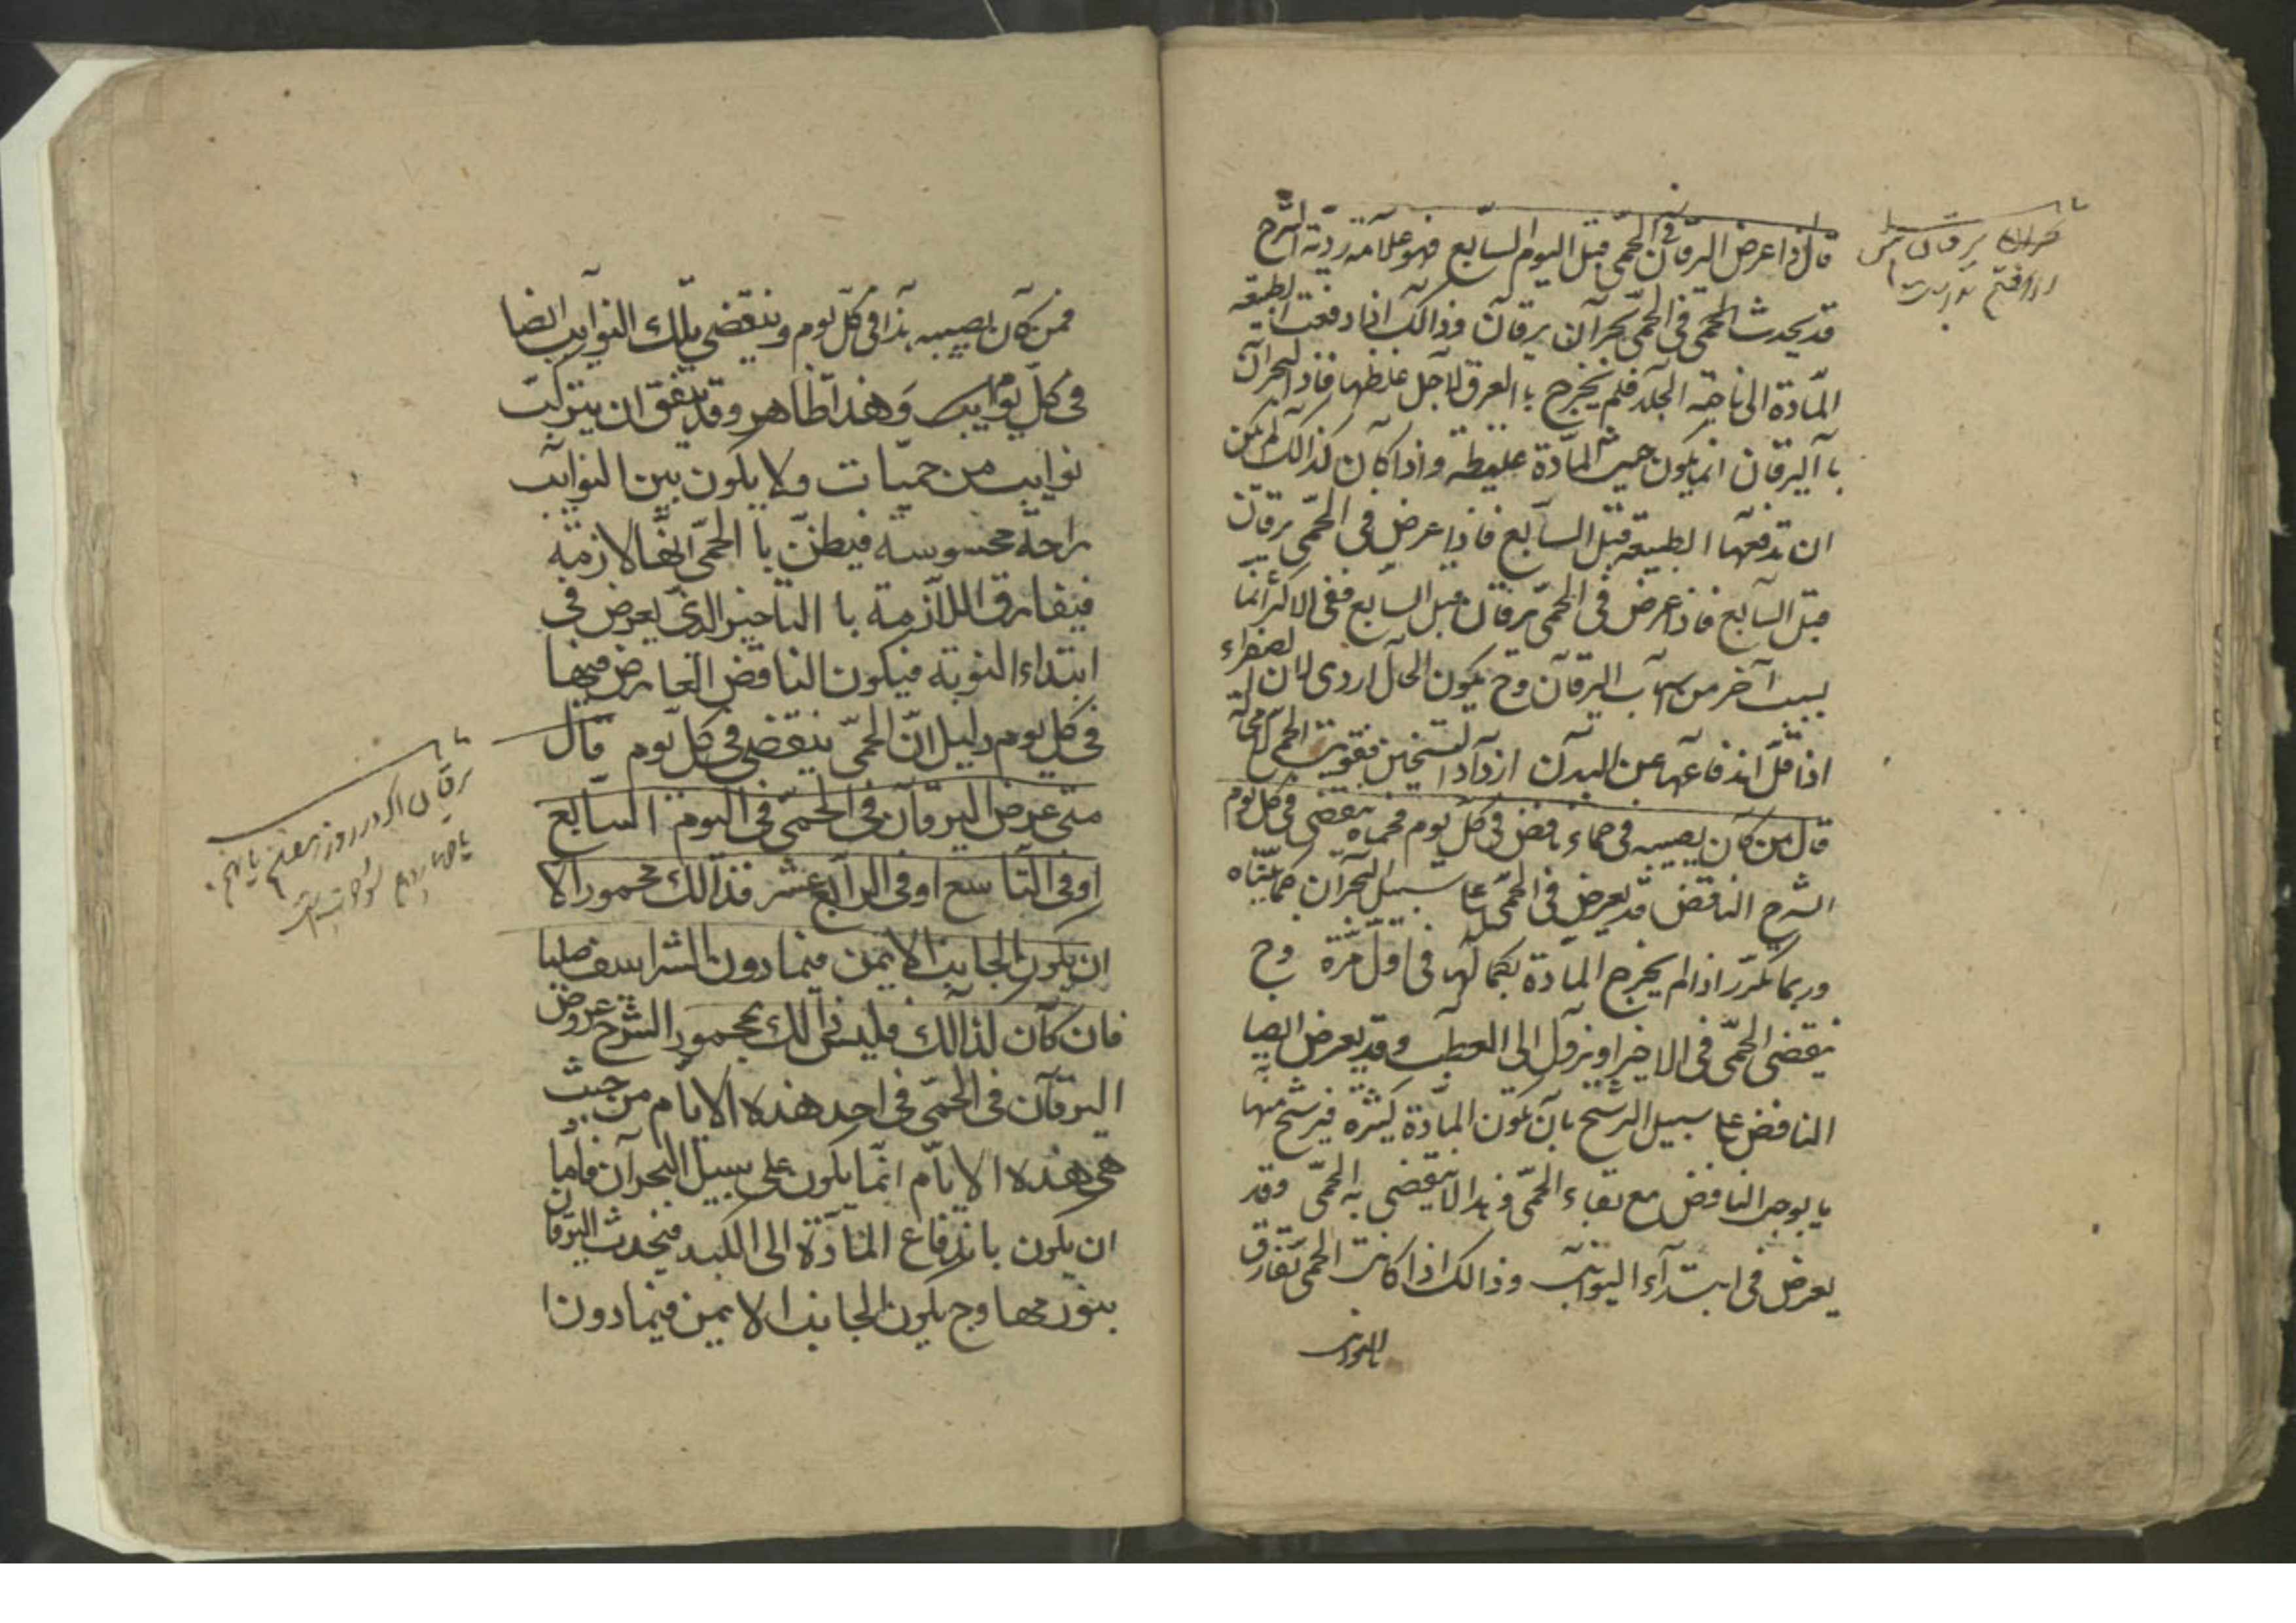 قال اذا عرض اليرقان في الحمى قبل اليوم السابع فهو علامة ردية الشرح
قد يحدث الحمى فى الحمى بحران يرقان وذالك اذا دفعت الطبيعه
المادة الى ناحية الجلد فلم يخرج باالعرق لاجل غلظها فاذ البحران
باآليرقان انما يكون حيث المادة غليظه واذا كان كذالك لم يمكن
ان تدفعها الطبيعه قبل السابع فاذا عرض فى الحمى يرقان
قبل السابع فاذا عرض فى الحمى يرقان قبل السابع ففى الاكثر انما
بسبب آخر من اسباب اليرقان وح يكون الحال اردى لان الصفراء
اذا قل اندفاعها عن البدن ازداد التسخين فقويت الحمى
قال من كان يصيبه فى حماه نافض فى كل يوم فحماه تنقضى فى كل يوم
الشرح النافض قد يعرض فى الحمى على سبيل البحران كما بيناه
وربما تكرر اذا لم يخرج المادة بكمالها فى اول مرة وح
ينقضى الحمى فى الاخير او يزول الى العطب وقد يعرض ايضا
النافض على سبيل الترشح بان تكون المادة كثيره فيترشح منها
ما يوجب النافض مع بقاء الحمى وهذا لا ينقضى به الحمى وقد
يعرض فى ابتداء النوايب وذالك اذا كانت الحمى تفارق
بحران يرقان
فمن كان يصيبه هذا فى كل يوم وينقضي تلك النوايب ايضا
فى كل يوم وهذا ظاهر وقد يتفق ان يتركب
نوايب من حميات ولا يكون بين النوايب
راحة محسوسة فيظن باالحمى انها لازمة
فيفارق اللازمة باالتاخير الذى يعرض فى
ابتداء النوبه فيكون النافض العارض فيها
فى كل يوم دليل ان الحمى ينقضى فى كل يوم قال
متى عرض اليرقان فى الحمى فى اليوم السابع
او فى التاسع او فى الرابع عشر فذالك محمور الا
ان يكون الجانب الايمن فيما دون الشراسف صلبا
فان كان لذالك فليس ذالك بمحمور الشرح عروض
اليرقان فى الحمى فى احد هذه الايام من حيث
هى هذه الايام انما يكون على سبيل البحران فاما
ان يكون باندفاع المادة الى الكبد فيحدث اليرقان
بتورمها وح يكون الجانب الايمن فيما دون ا
يرقان اكر در روز هفتم يا نهم
يا چهاردهم